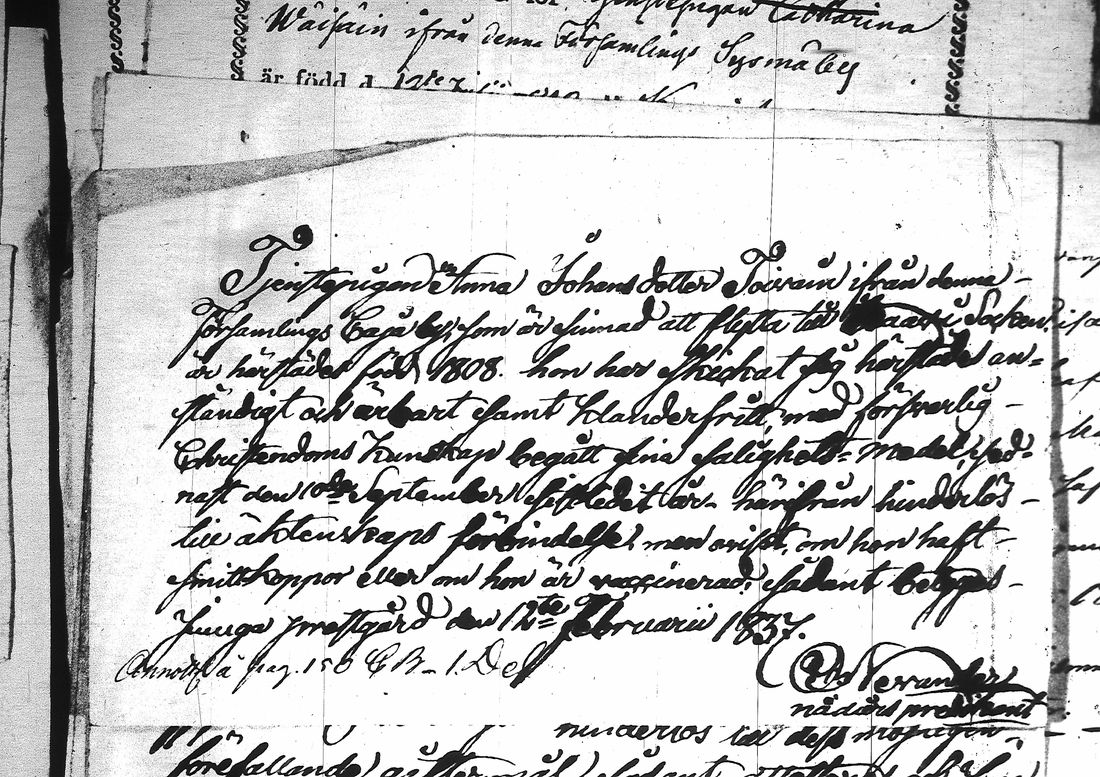 Catharina
Wäisäin ifrån denna Församlings Sysmä by
är född d.
Tjenstepigan Anna Johansdotter Toivain ifrån denna
Församlings Caja by, som är sinnad att flytta till Socken,
är härstädes född 1808. hon har skickat sig härstädes an=
ständigt och ärbart samt klanderfritt, med försvarlig
Christendoms Kunskap begått sina salighets= medel, sed=
nast den September sistledit år - härifrån hinderlös
till äktenskaps förbindelse, men ovisst, om hon haft
Smittkoppor eller om hon är vaccinerad; sådant betygas
Juuga prestgård den 12te Februarii 1837.
å pag. 158 C B. 1. Del
Nerander
nådårs predikant
hinderlös till dess
förefallande giftermål, sådant